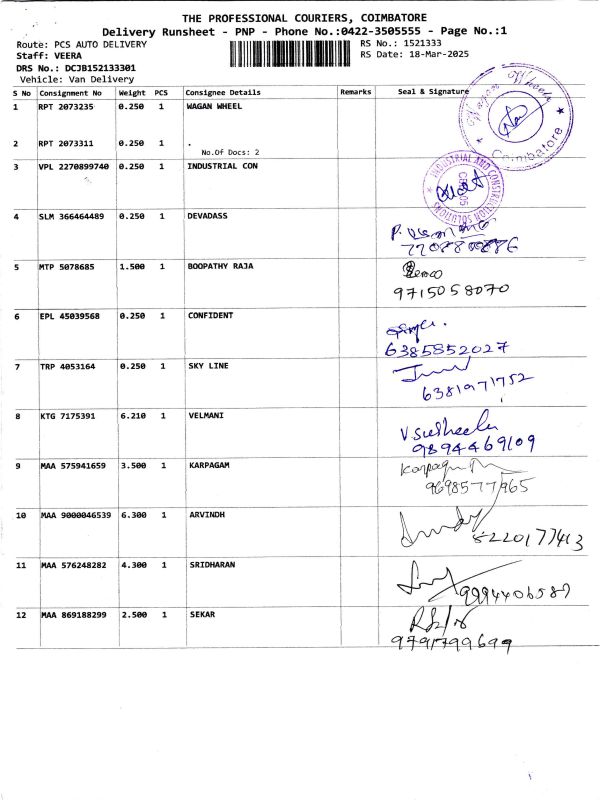 THE PROFESSIONAL COURIERS, COIMBATORE
Delivery Runsheet - PNP - Phone No.:0422-3505555 - Page No.:1
Route: PCS AUTO DELIVERY
RS No.: 1521333
Staff: VEERA
RS Date: 18-Mar-2025
DRS No.: DCJB152133301
Vehicle: Van Delivery
S No Consignment No Weight PCS Consignee Details Remarks Seal & Signature
1 RPT 2073235 0.250 1 WAGAN WHEEL
Wagon Wheels
Coimbatore
2 RPT 2073311 0.250 1 .
No.Of Docs: 2
3 VPL 2270899740 0.250 1 INDUSTRIAL CON
INDUSTRIAL AND CONSTRUCTION SOLUTIONS
4 SLM 366464489 0.250 1 DEVADASS
5 MTP 5078685 1.500 1 BOOPATHY RAJA
9715058070
6 EPL 45039568 0.250 1 CONFIDENT
6385852027
7 TRP 4053164 0.250 1 SKY LINE
6381971752
8 KTG 7175391 6.210 1 VELMANI
9894469109
9 MAA 575941659 3.500 1 KARPAGAM
9698577965
10 MAA 9000046539 6.300 1 ARVINDH
8220177413
11 MAA 576248282 4.300 1 SRIDHARAN
9994406587
12 MAA 869188299 2.500 1 SEKAR
9791799699